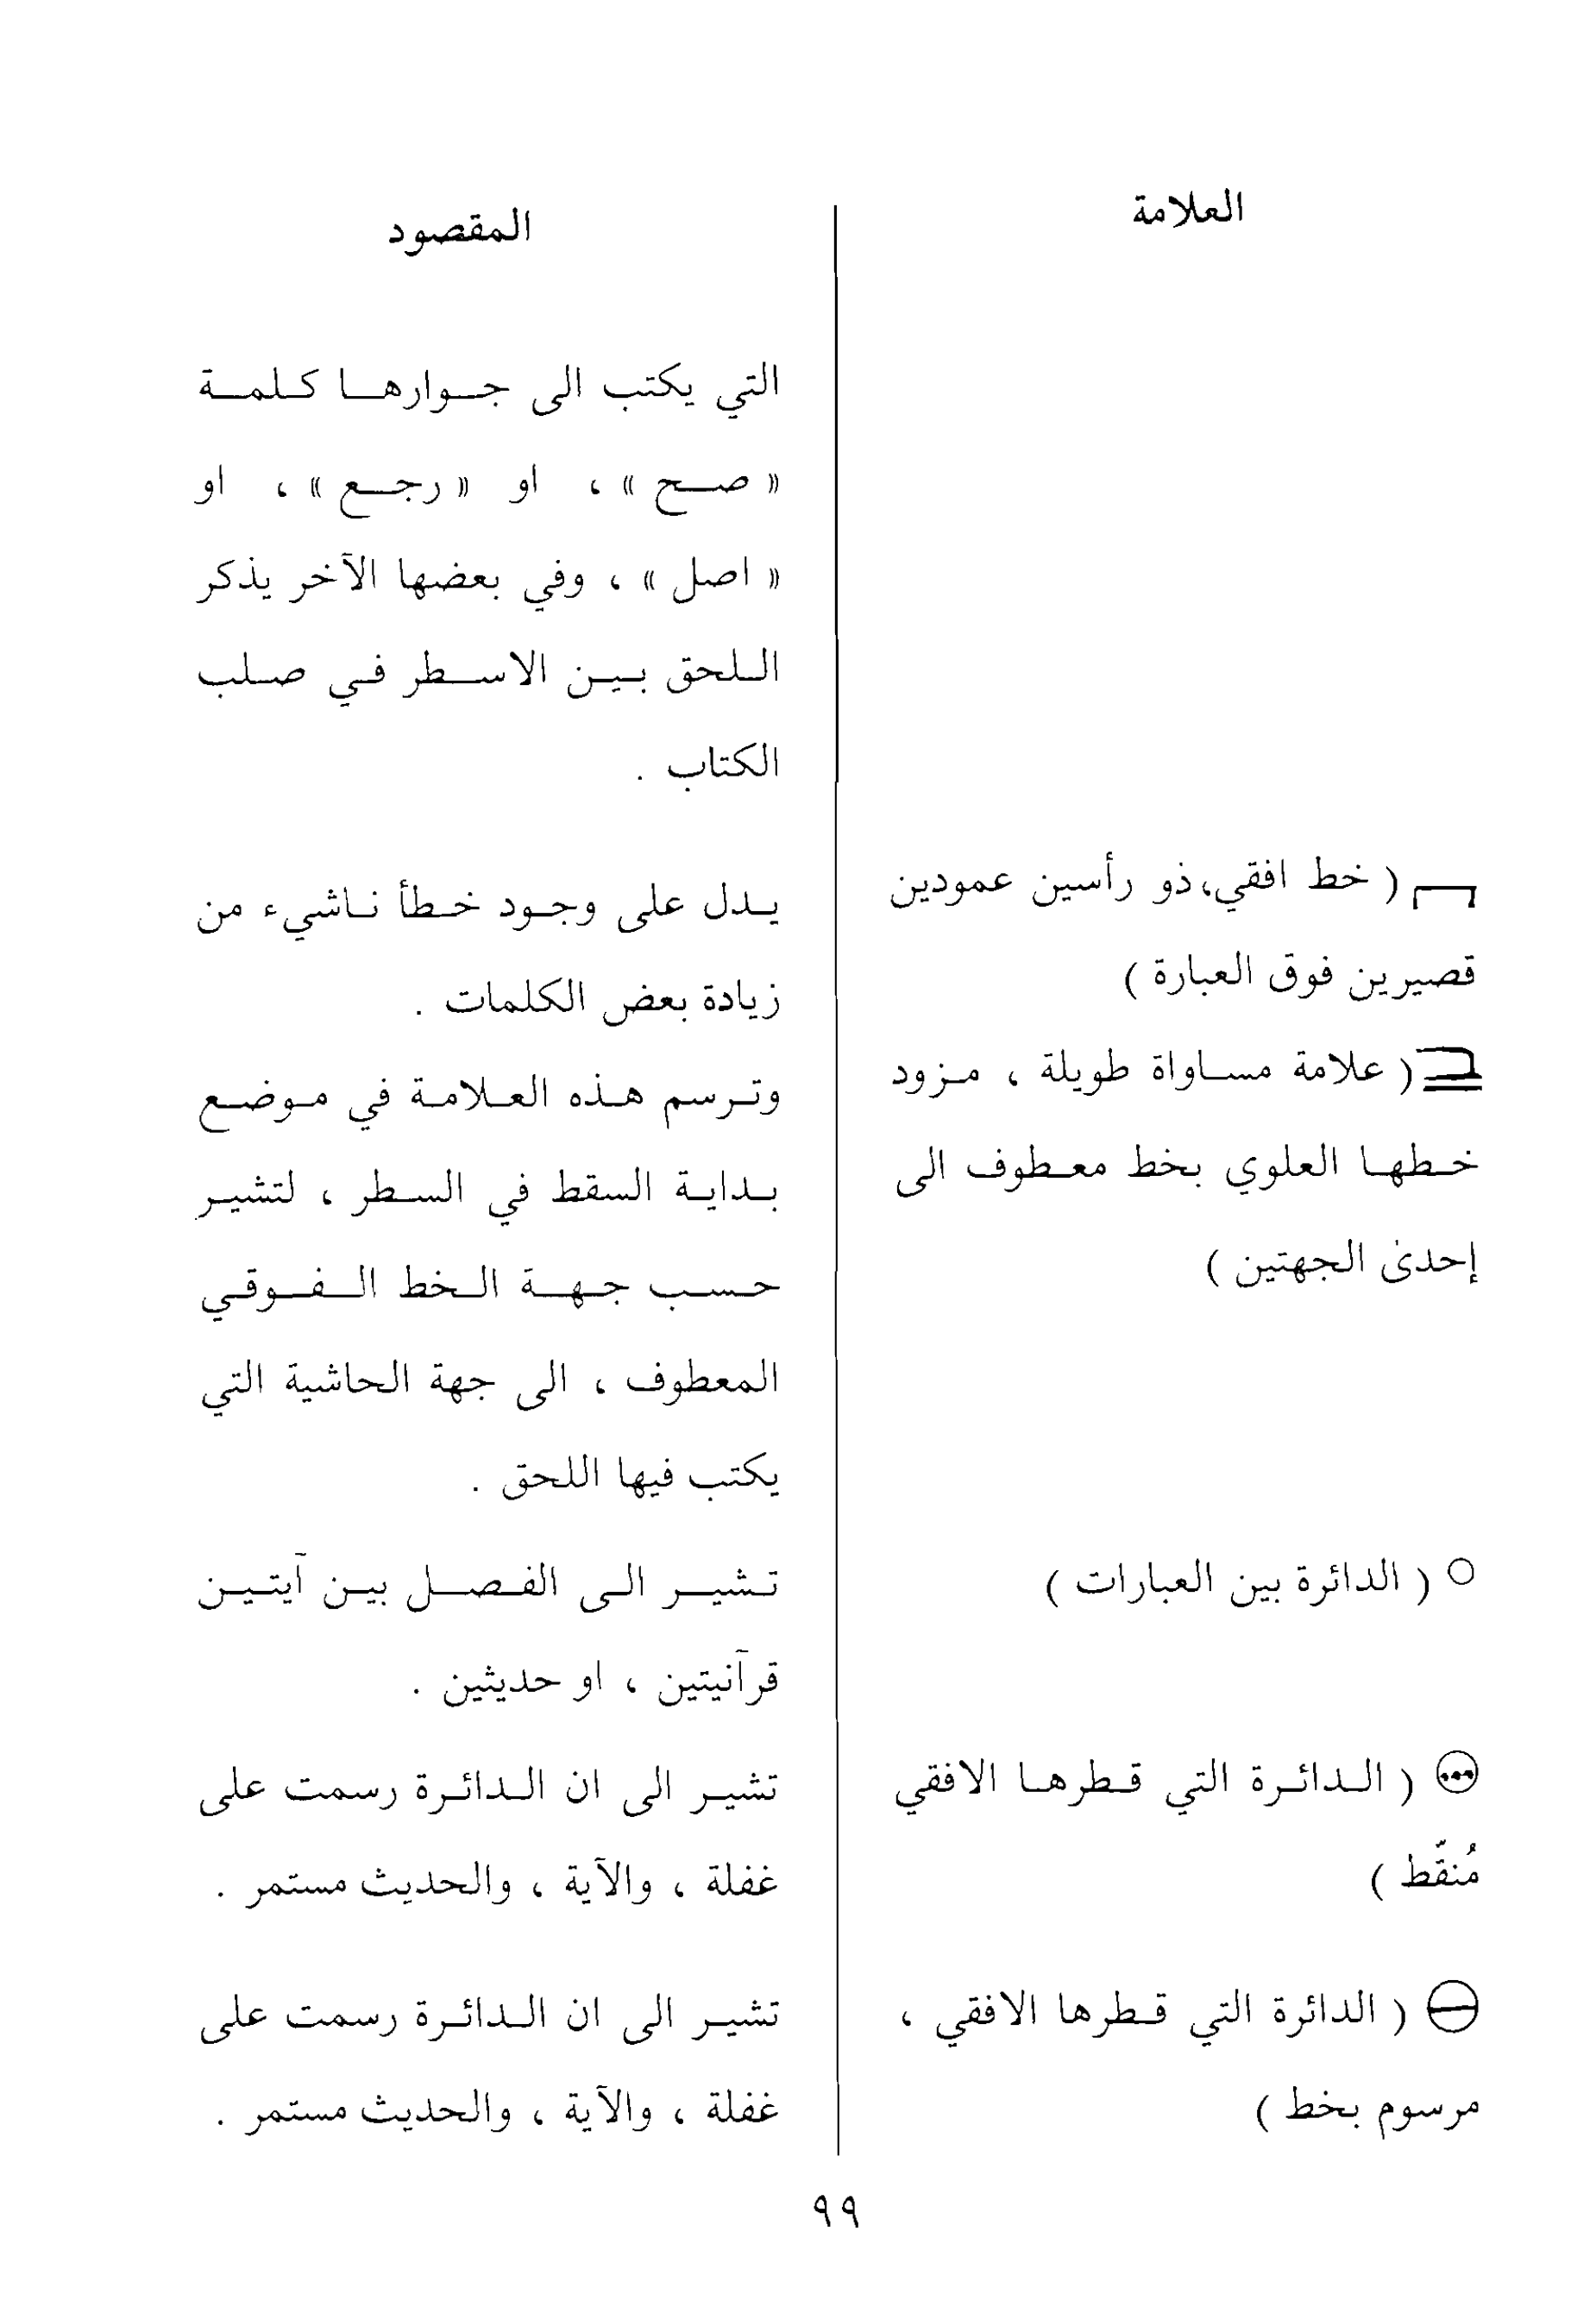 العلامة
المقصود
التي يكتب الى جوارها كلمة
« صح » ، او « رجع » ، او
« اصل » ، وفي بعضها الآخر يذكر
اللحق بين الاسطر في صلب
الكتاب .
( خط افقي، ذو رأسين عمودين
قصيرين فوق العبارة )
يدل على وجود خطأ ناشيء من
زيادة بعض الكلمات .
( علامة مساواة طويلة ، مزود
خطها العلوي بخط معطوف الى
إحدىٰ الجهتين )
وترسم هذه العلامة في موضع
بداية السقط في السطر ، لتشير
حسب جهة الخط الفوقي
المعطوف ، الى جهة الحاشية التي
يكتب فيها اللحق .
○ ( الدائرة بين العبارات )
تشير الى الفصل بين آيتين
قرآنيتين ، او حديثين .
( الدائرة التي قطرها الافقي
مُنقّط )
تشير الى ان الدائرة رسمت على
غفلة ، والآية ، والحديث مستمر .
⊖ ( الدائرة التي قطرها الافقي ،
مرسوم بخط )
تشير الى ان الدائرة رسمت على
غفلة ، والآية ، والحديث مستمر .
٩٩